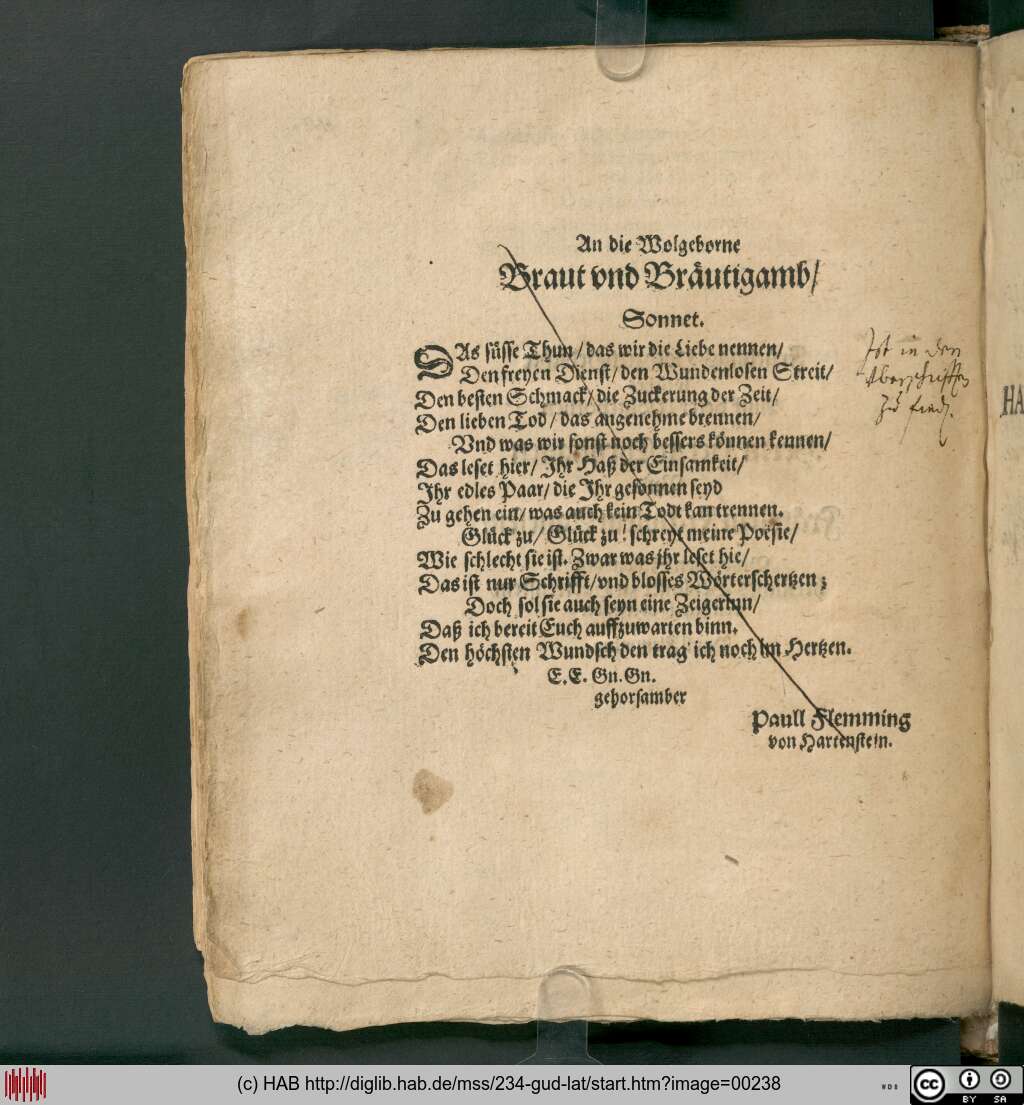 An die Wolgeborne
Braut vnd Bräutigamb/
Sonnet.
DAs süsse Thun/das wir die Liebe nennen/
Den freyen Dienst/den Wundenlosen Streit/
Den besten Schmack/die Zuckerung der Zeit/
Den lieben Tod/das angenehme brennen/
Vnd was wir sonst noch bessers können kennen/
Das leset hier/Ihr Haß der Einsamkeit/
Ihr edles Paar/die Ihr gesonnen seyd
Zu gehen ein/was auch kein Todt kan trennen.
Glück zu/Glück zu! schreyt meine Poësie/
Wie schlecht sie ist. Zwar was jhr leset hie/
Das ist nur Schrifft/vnd blosses Wörterschertzen;
Doch sol sie auch seyn eine Zeigerinn/
Daß ich bereit Euch auffzuwarten binn.
Den höchsten Wundsch den trag' ich noch im Hertzen.
E. E. Gn. Gn.
gehorsamber
Paull Flemming
von Hartenstein.
Ist in den
Uberschrifften
zu
HA
(c) HAB http://diglib.hab.de/mss/234-gud-lat/start.htm?image=00238
WDB
cc
BY SA